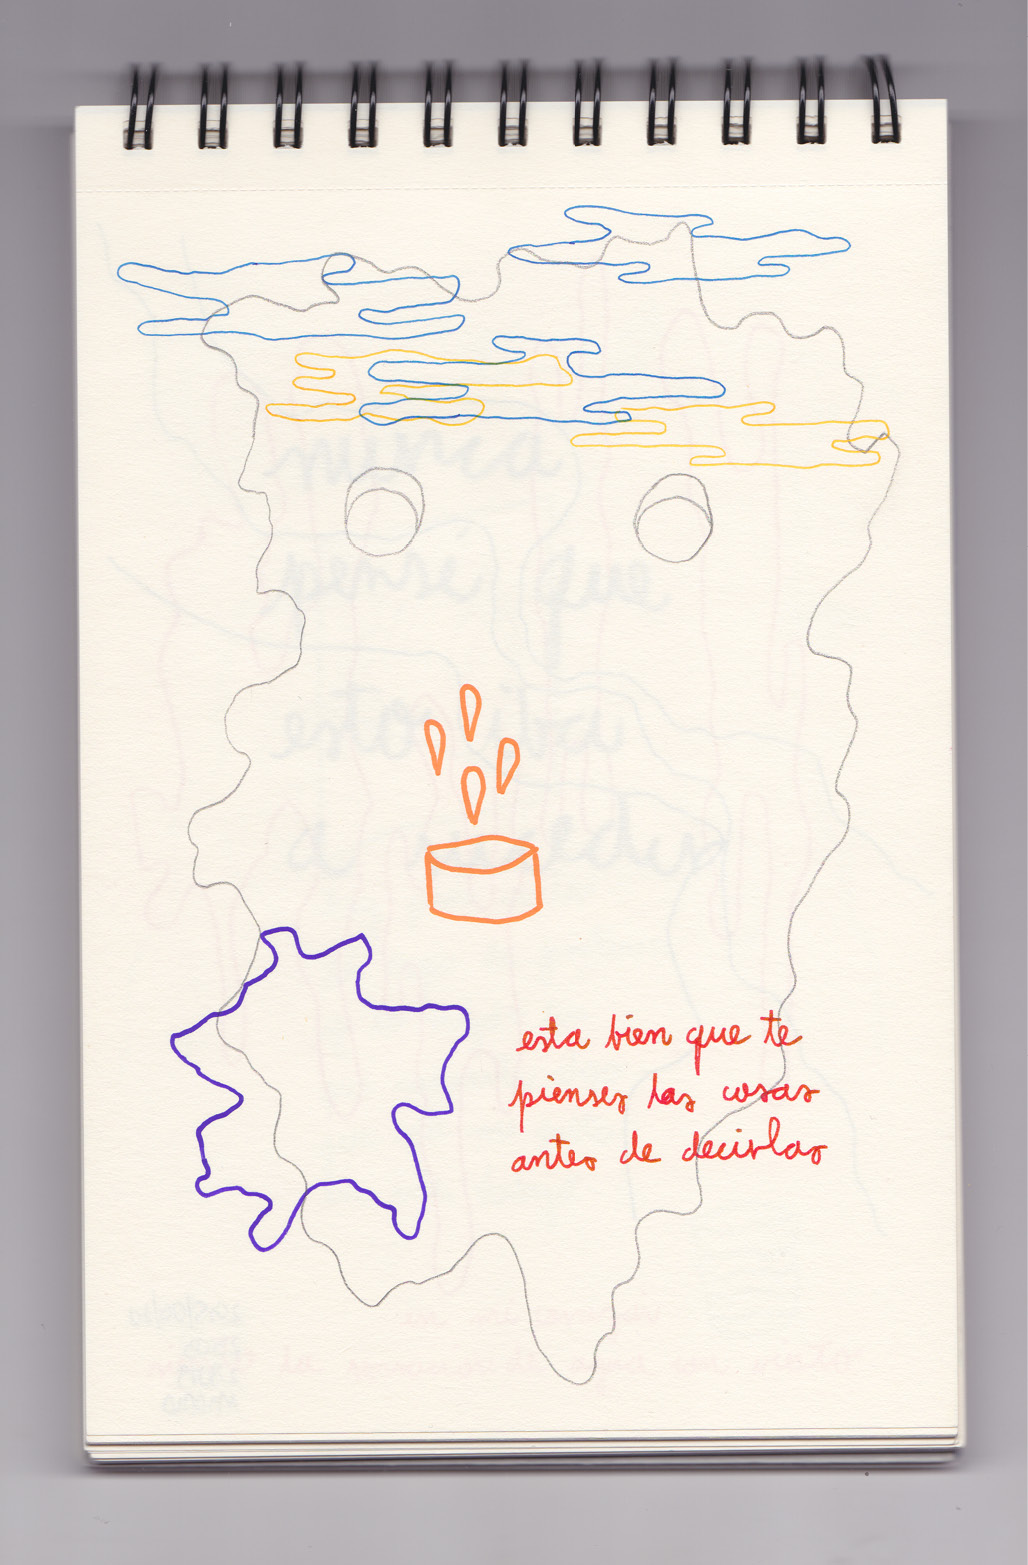 esta bien que te
pienses las cosas
antes de decirlas